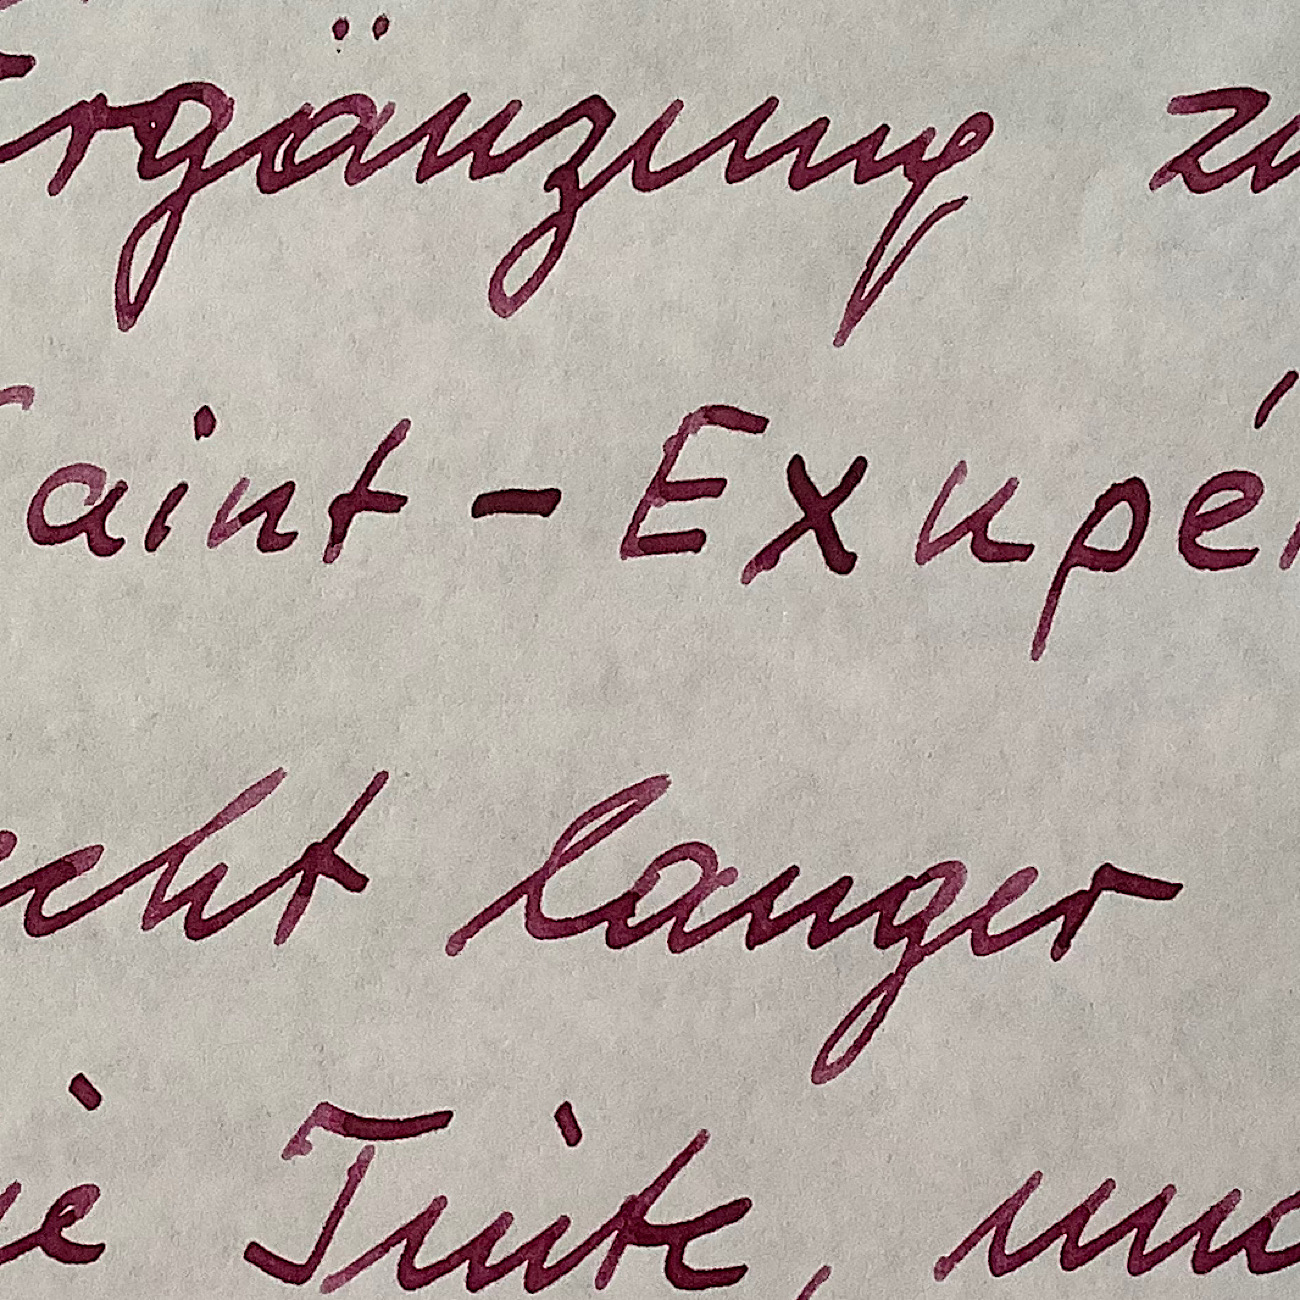 Ergänzung zu
Saint-Exupér
echt langer
die Tinte, und